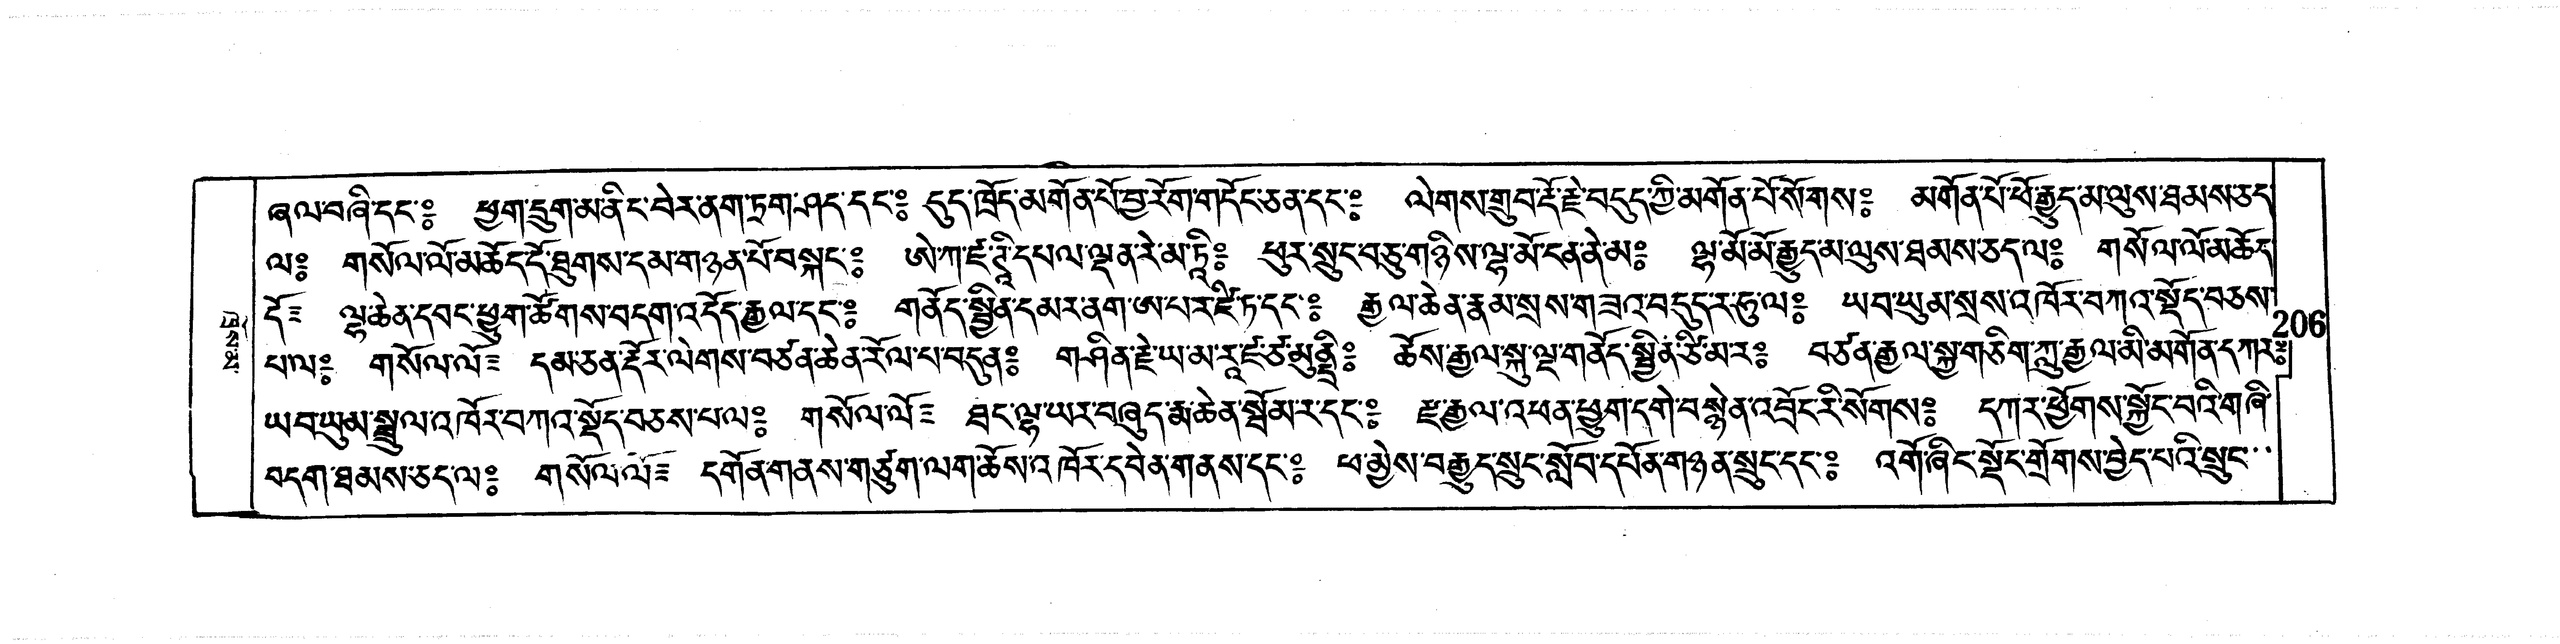 ཞལ་བཞི་དང་༔ ཕྱག་དྲུག་མ་ནིང་བེར་ནག་ཏྲག་ཤད་དང་༔ དུད་ཁྲོད་མགོན་པོ་བྱ་རོག་གདོང་ཅན་དང་༔ ལེགས་གྲུབ་རྡོ་རྗེ་བདུད་ཀྱི་མགོན་པོ་སོགས༔ མགོན་པོ་ཕོ་རྒྱུད་མ་ལུས་ཐམས་ཅད
ལ༔ གསོལ་ལོ་མཆོད་དོ་ཐུགས་དམ་གཉན་པོ་བསྐང་༔ ཨེ་ཀ་ཛ་ཊཱི་དཔལ་ལྡན་རེ་མ་ཏཱི༔ ཕུར་སྲུང་བཅུ་གཉིས་ལྷ་མོ་ངན་ནེ་མ༔ ལྷ་མོ་མོ་རྒྱུད་མ་ལུས་ཐམས་ཅད་ལ༔ གསོལ་ལོ་མཆོད
དོ༔ ལྷ་ཆེན་དབང་ཕྱུག་ཚོགས་བདག་འདོད་རྒྱལ་དང་༔ གནོད་སྦྱིན་དམར་ནག་ཨ་པ་ར་ཛི་ཏ་དང་༔ རྒྱལ་ཆེན་རྣམ་སྲས་གཟའ་བདུད་ར་ཧུ་ལ༔ ཡབ་ཡུམ་སྲས་འཁོར་བཀའ་སྡོད་བཅས་
པ་ལ༔ གསོལ་ལོ༔ དམ་ཅན་རྡོར་ལེགས་བཙན་ཆེན་རོལ་པ་བདུན༔ གཤིན་རྗེ་ཡ་མ་རཱ་ཛ་ཙ་མུནྡྲི༔ ཆོས་རྒྱལ་སྐུ་ལྔ་གནོད་སྦྱིན་ཙིམ་ར༔ བཙན་རྒྱལ་སྐྱ་གཅིག་ཀླུ་རྒྱལ་མི་མགོན་དཀར༔
ཡབ་ཡུམ་སྤྲུལ་འཁོར་བཀའ་སྡོད་བཅས་པ་ལ༔ གསོལ་ལོ༔ ཐང་ལྷ་ཡར་བཞུད་རྨ་ཆེན་སྦོམ་ར་དང་༔ རྫ་རྒྱལ་འཕན་ཕྱུག་དགེ་བསྙེན་འབྲོང་རི་སོགས༔ དཀར་ཕྱོགས་སྐྱོང་བའི་གཞི
བདག་ཐམས་ཅད་ལ༔ གསོལ་ལོ༔ དགོན་གནས་གཙུག་ལག་ཆོས་འཁོར་དབེན་གནས་དང་༔ ཕ་མྱེས་བརྒྱུད་སྲུང་སློབ་དཔོན་གཉན་སྲུང་དང་༔ འགོ་ཞིང་སྡོང་གྲོགས་བྱེད་པའི་སྲུང་
206